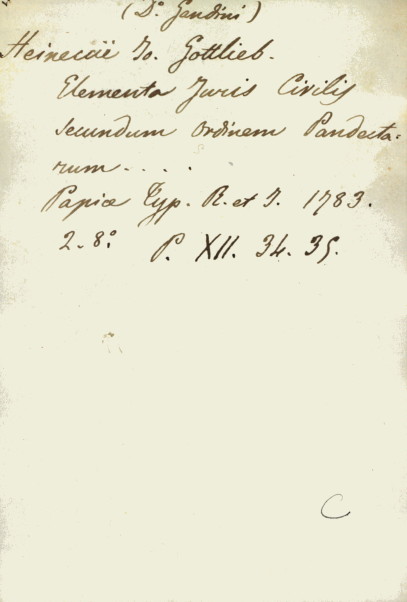 (D.° Gandini)
Heineccii Io. Gottlieb.
Elementa Juris Civilis
secundum ordinem Pandecta-
rum . . . .
Papiæ Typ. R. et I. 1783.
2. 8.° P. XII. 34. 35.
C